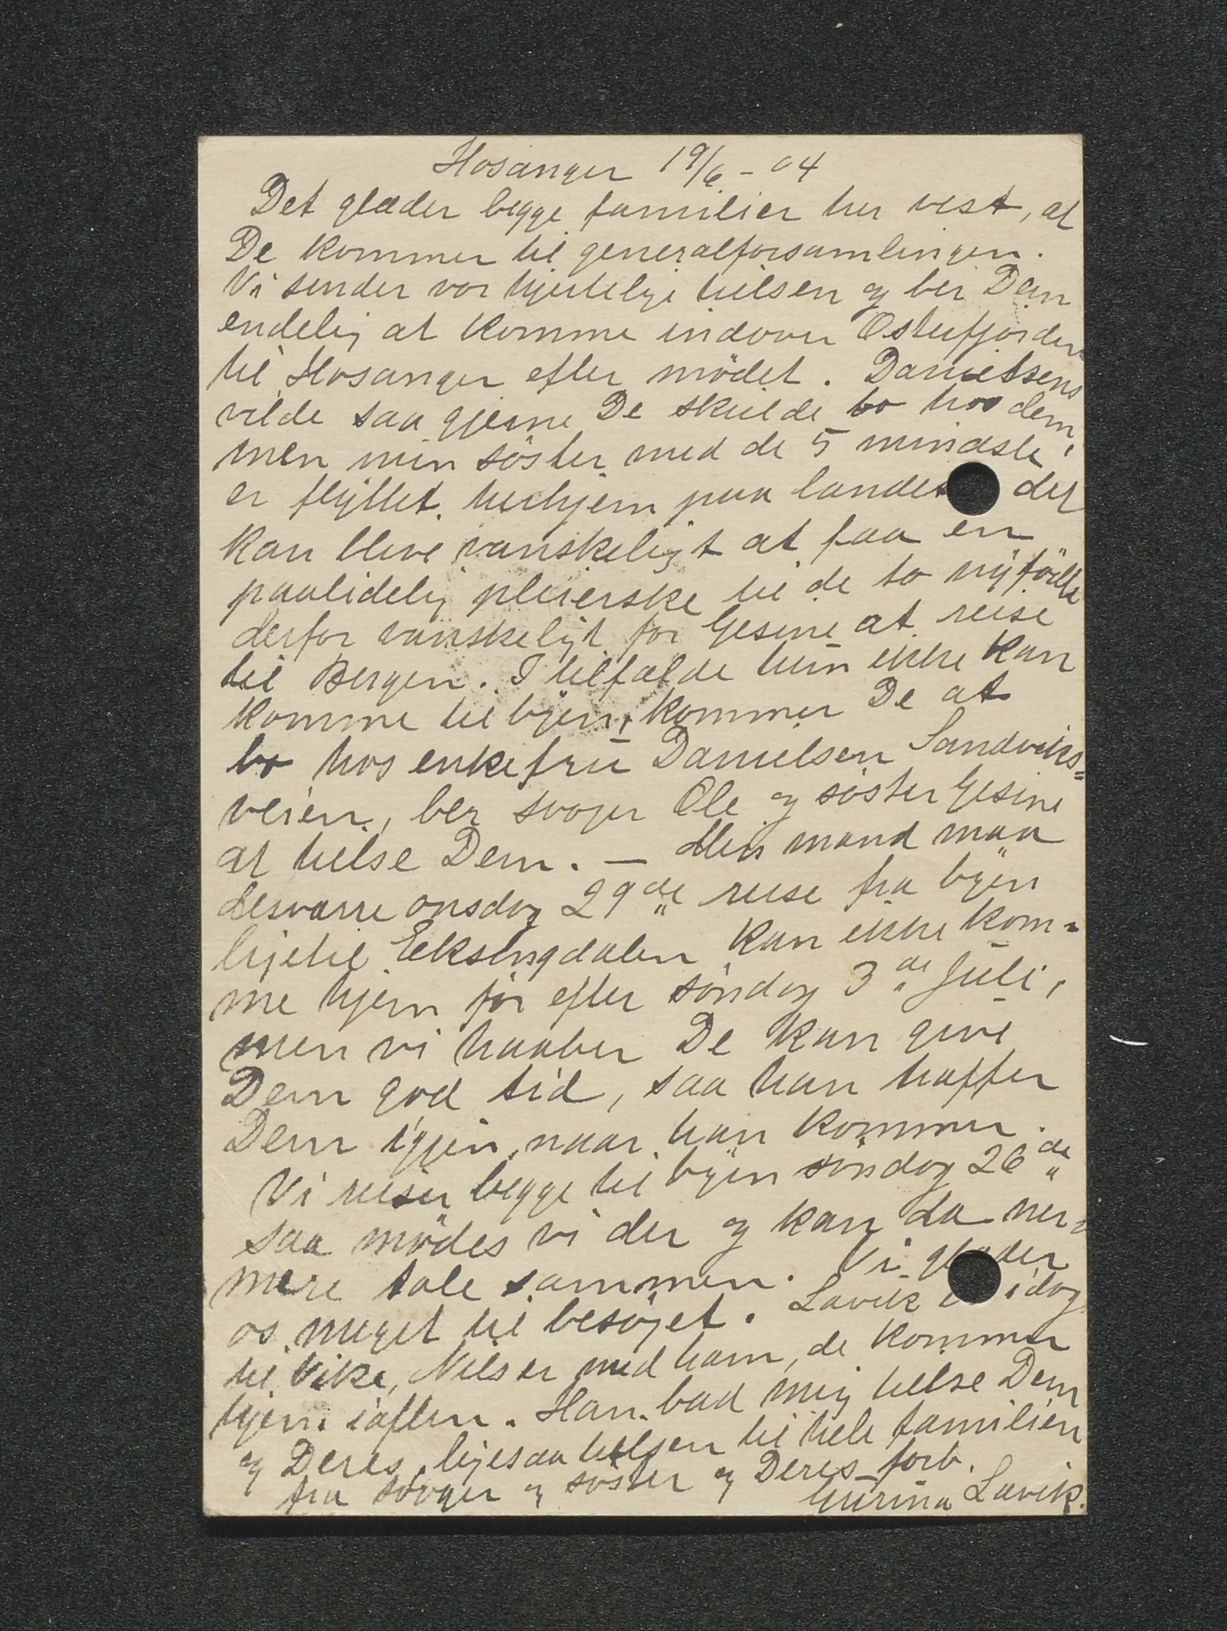 Hosanger 19/6 - 04
Det glæder begge familier her vest, at
De kommer til generalforsamlingen.
Vi sender vor hjertelige hilsen og ber Dem
endelig at komme indover Osterfjorden
til Hosanger efter mödet. Danielsens
vilde saa gjerne De skulde bo hos dem,
men min söster med de 5 mindste
er flyttet herhjem paa landet det
kan blive vanskeligt at faa en
paalidelig pleierske til de to nyfödte
derfor vanskeligt for Gesine at reise
til Bergen. I tilfælde hun ikke kan
komme til byen, kommer De at
bo hos enkefru Danielsen Sandviks=
veien, ber svoger Ole og söster Gesine
at hilse Dem. — Min mand maa
desværre onsdag 29de reise fra byen
lige til Eksingdalen kan ikke kom=
me hjem för efter söndag 3de Juli,
men vi haaber De kan give
Dem god tid, saa han træffer
Dem igjen, naar han kommer.
Vi reiser begge til byen söndag 26de
saa mödes vi der og kan da ner=
mere tale sammen. Vi glæder
os meget til besöget. Lavik idag
til Vike, Nils er med ham, de kommer
hjem iaften. Han bad mig hilse Dem
og Deres, ligesaa hilsen til hele familien
fra svoger og söster og Deres forb.
Gurina Lavik.